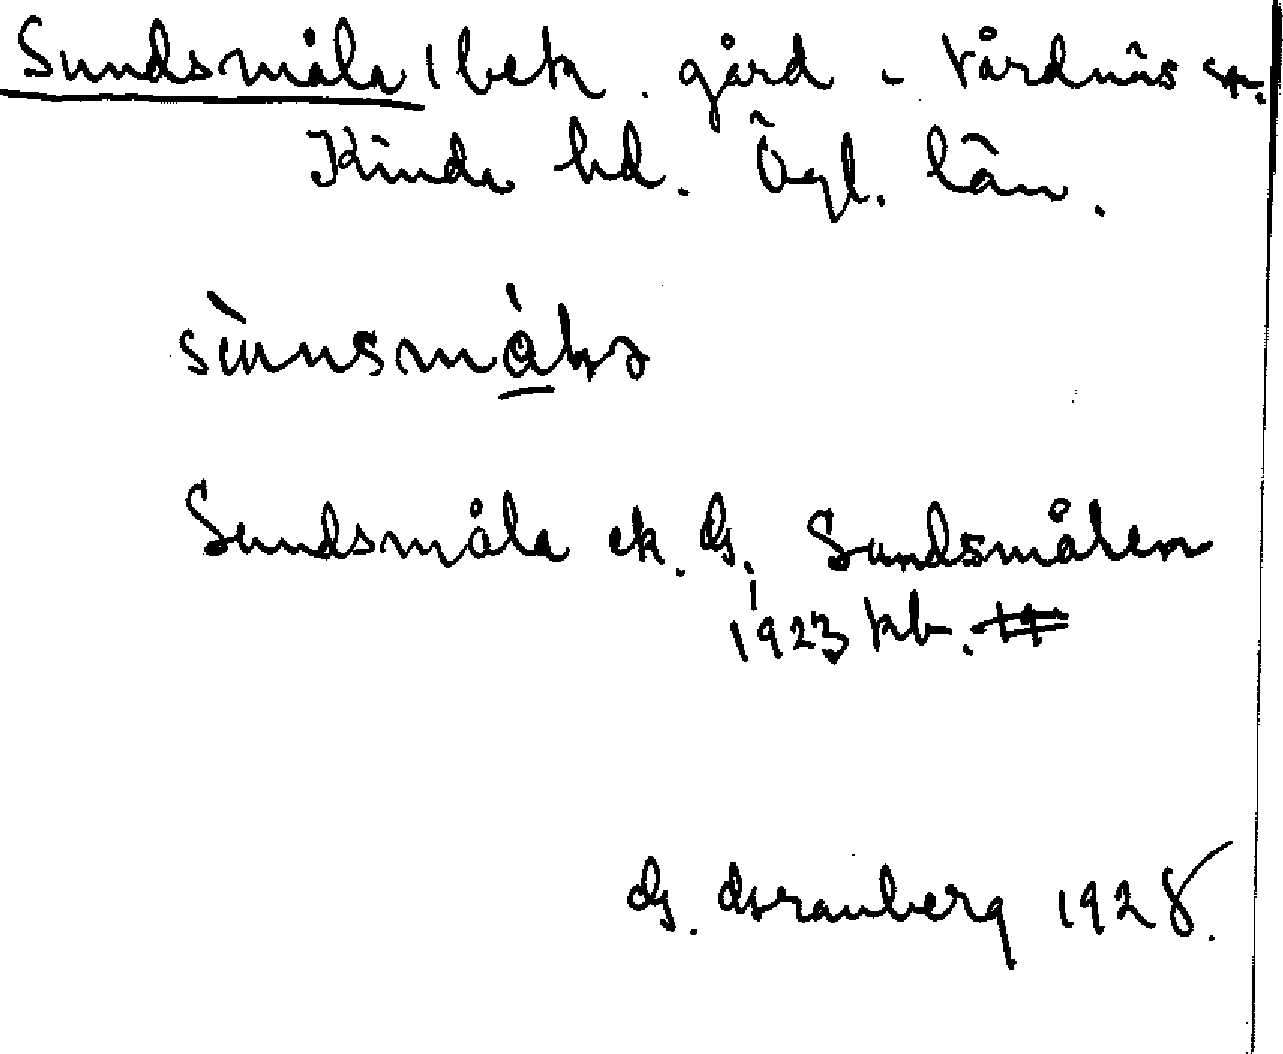 Sundsmåla 1 bek. gård - Vårdnäs sn.
Kinda hd. Ögl. län.
sùnnsmålɑ
Sundsmåla ek. G. Sundsmålen
1923 kb.
G. Granberg 1928.